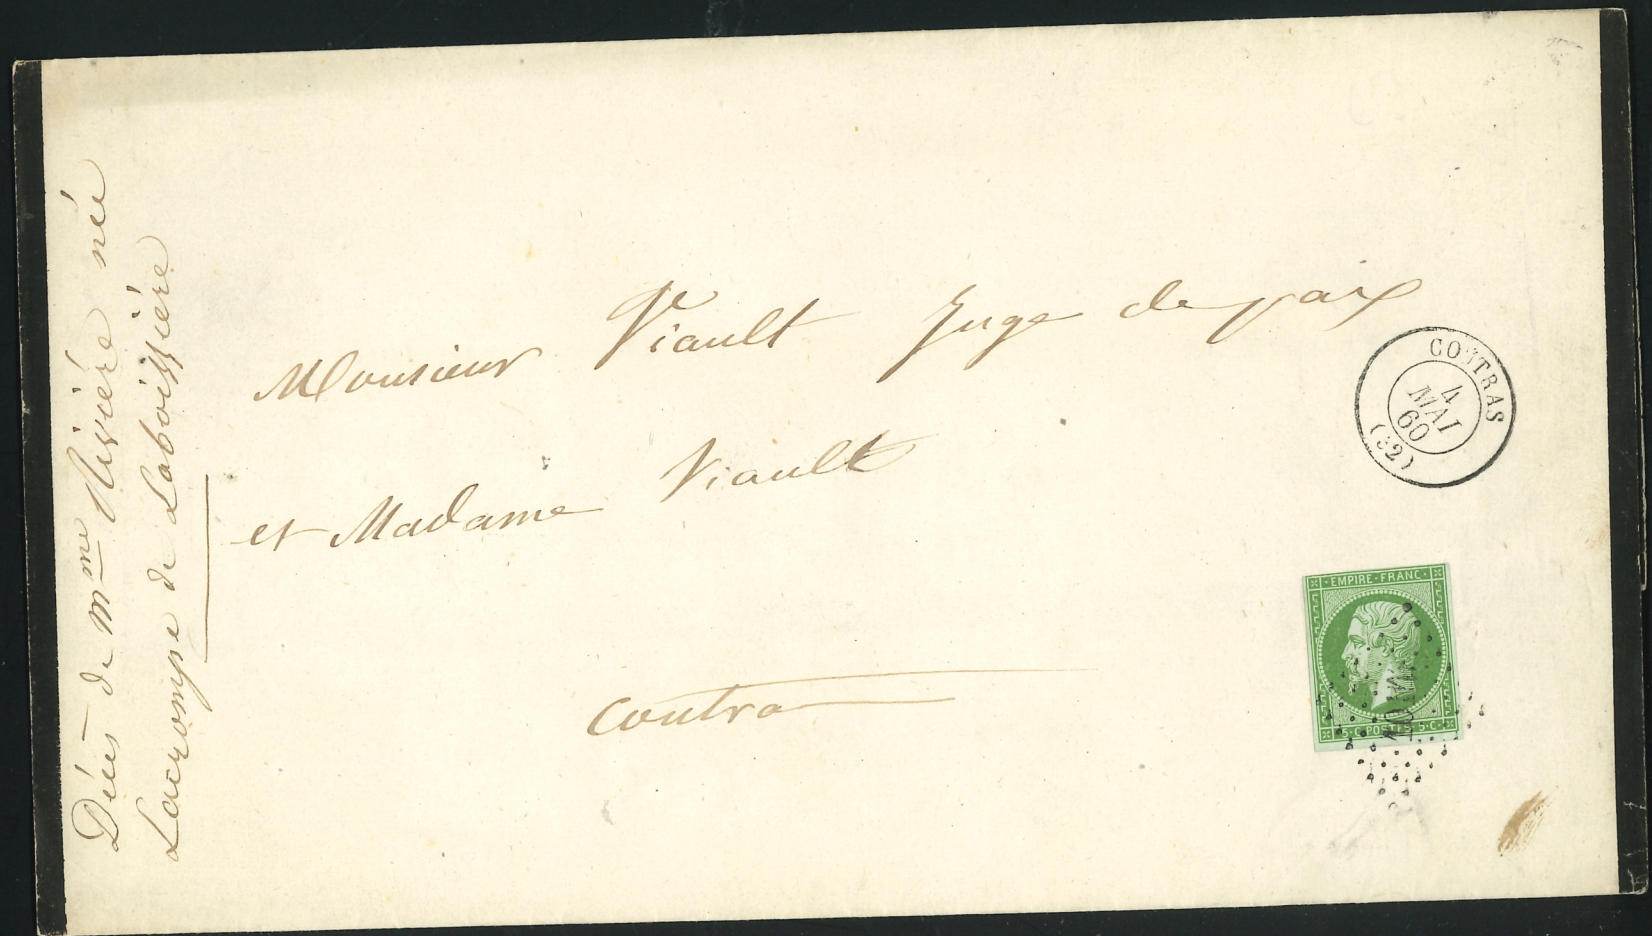 Décès de Mme Rivière née
Lacrompe de Laboissière
Monsieur Viault Juge de paix
et Madame Viault
Coutra
COUTRAS
4
MAI
60
(32)
EMPIRE · FRANC ·
5 · C · POSTES 5 · C ·